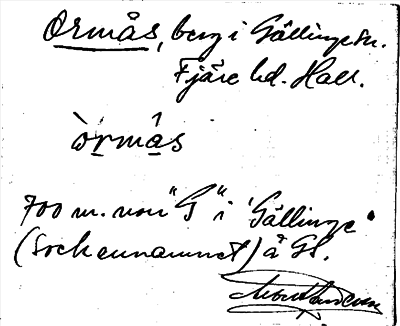 Ormås, berg i Gällinge sn.
Fjäre hd. Hall.
òrmâs
700 m. nov "G" i 'Gällinge'
(sockennamnet) å GS.